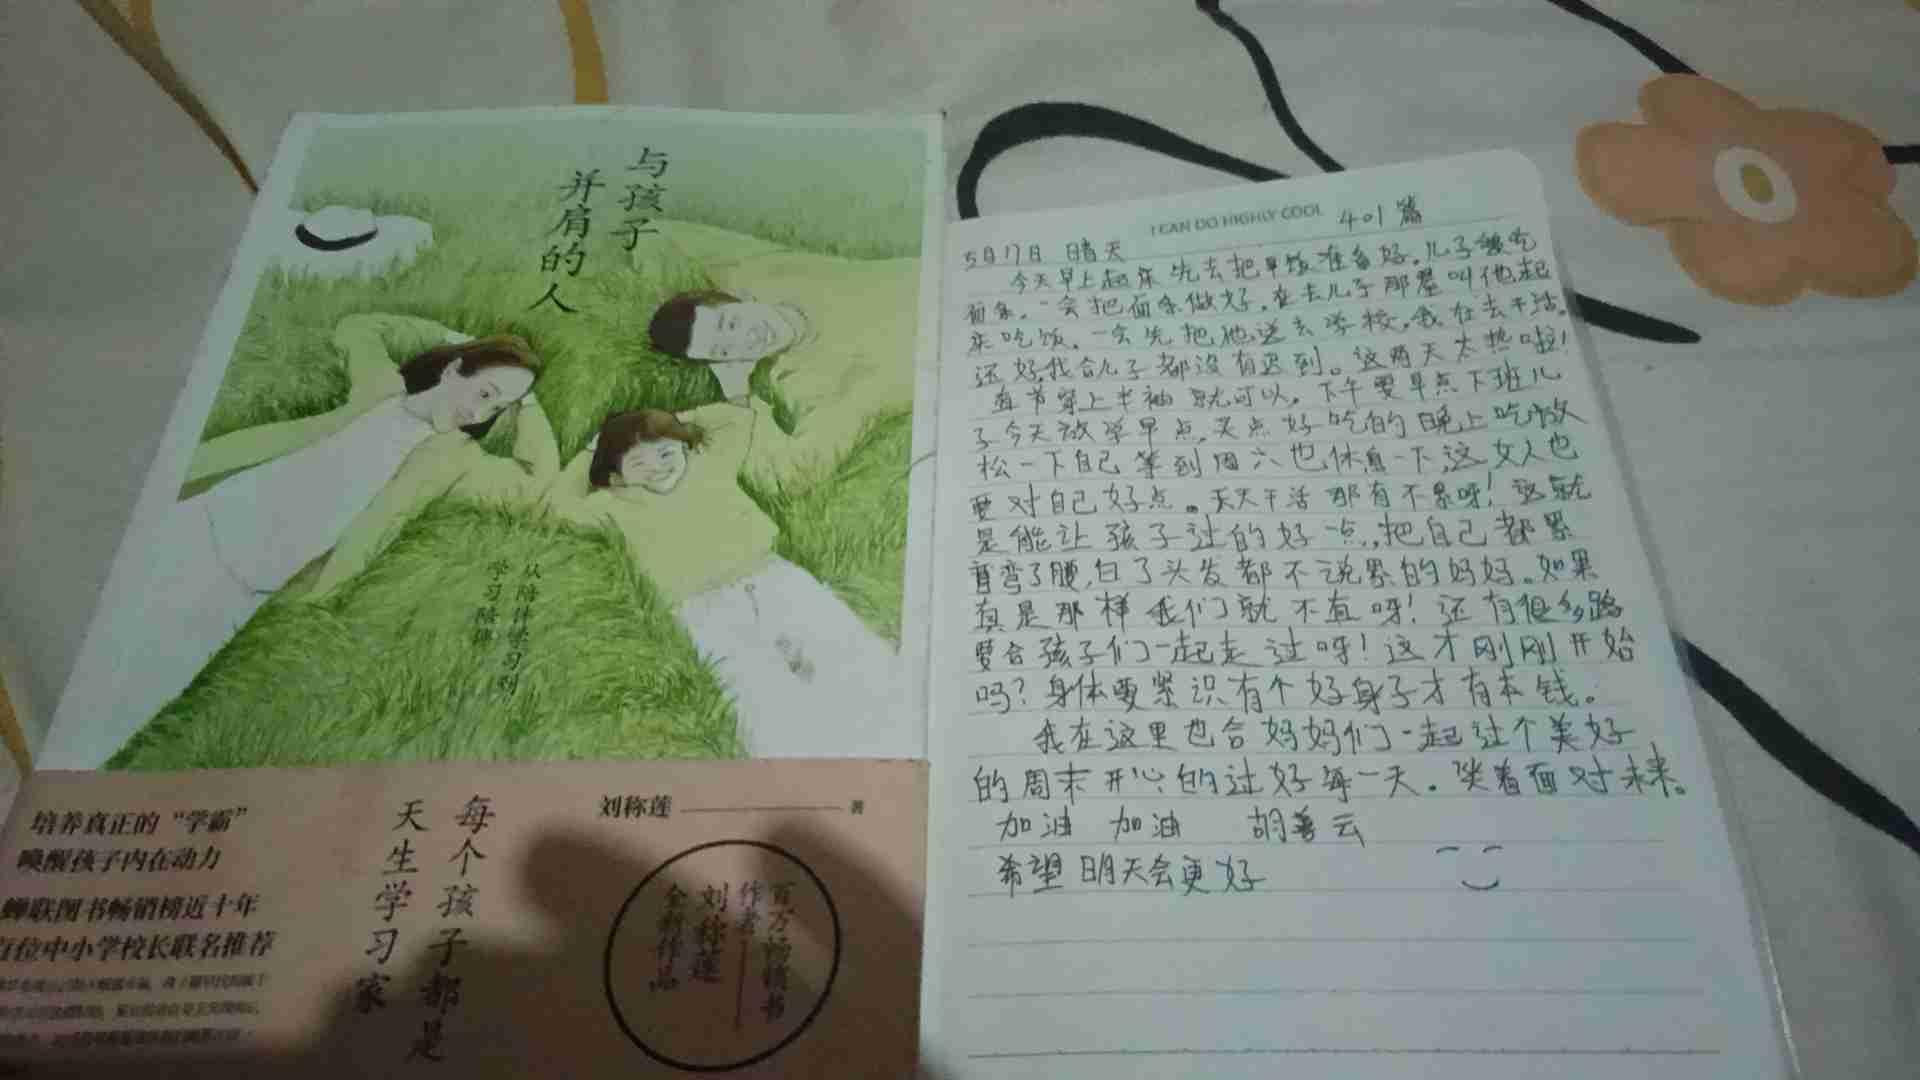 与孩子
并肩的人
从陪伴学习到
学习陪伴
培养真正的“学霸”
唤醒孩子内在动力
蝉联图书畅销榜近十年
百位中小学校长联名推荐
每个孩子都是
天生学习家
刘称莲 著
百万畅销书
作者
刘称莲
全新作品
I CAN DO HIGHLY COOL 401篇
5月17日 晴天
今天早上起来先去把早饭准备好。儿子想吃
面条。一会把面条做好。在去儿子那屋叫他起
来吃饭。一会先把他送去学校。我在去干活。
还好我合儿子都没有迟到。这两天太热啦！
直节穿上半袖就可以。下午要早点下班儿
子今天放学早点。买点好吃的晚上吃放
松一下自己等到周六也休息一下，这女人也
要对自己好点。天天干活那有不累呀！这就
是能让孩子过的好一点，把自己都累
弯了腰，白了头发都不说累的妈妈。如果
真是那样我们就不直呀！还有很多路
要合孩子们一起走过呀！这才刚刚开始
吗？身体要紧识有个好身子才有本钱。
我在这里也合妈妈们一起过个美好
的周末开心的过好每一天。笑着面对未来。
加油 加油 胡善云
希望明天会更好